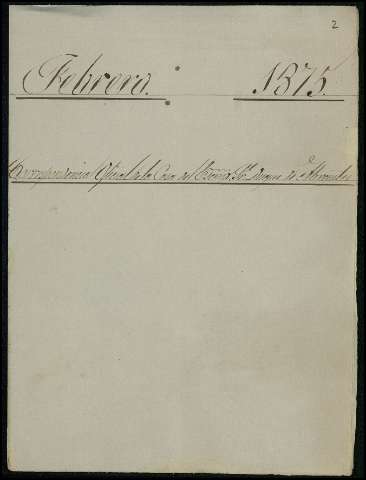 2
Febrero. 1875.
Correspondencia Oficial de la Casa del Excmo. Sr. Duque de Abrantes